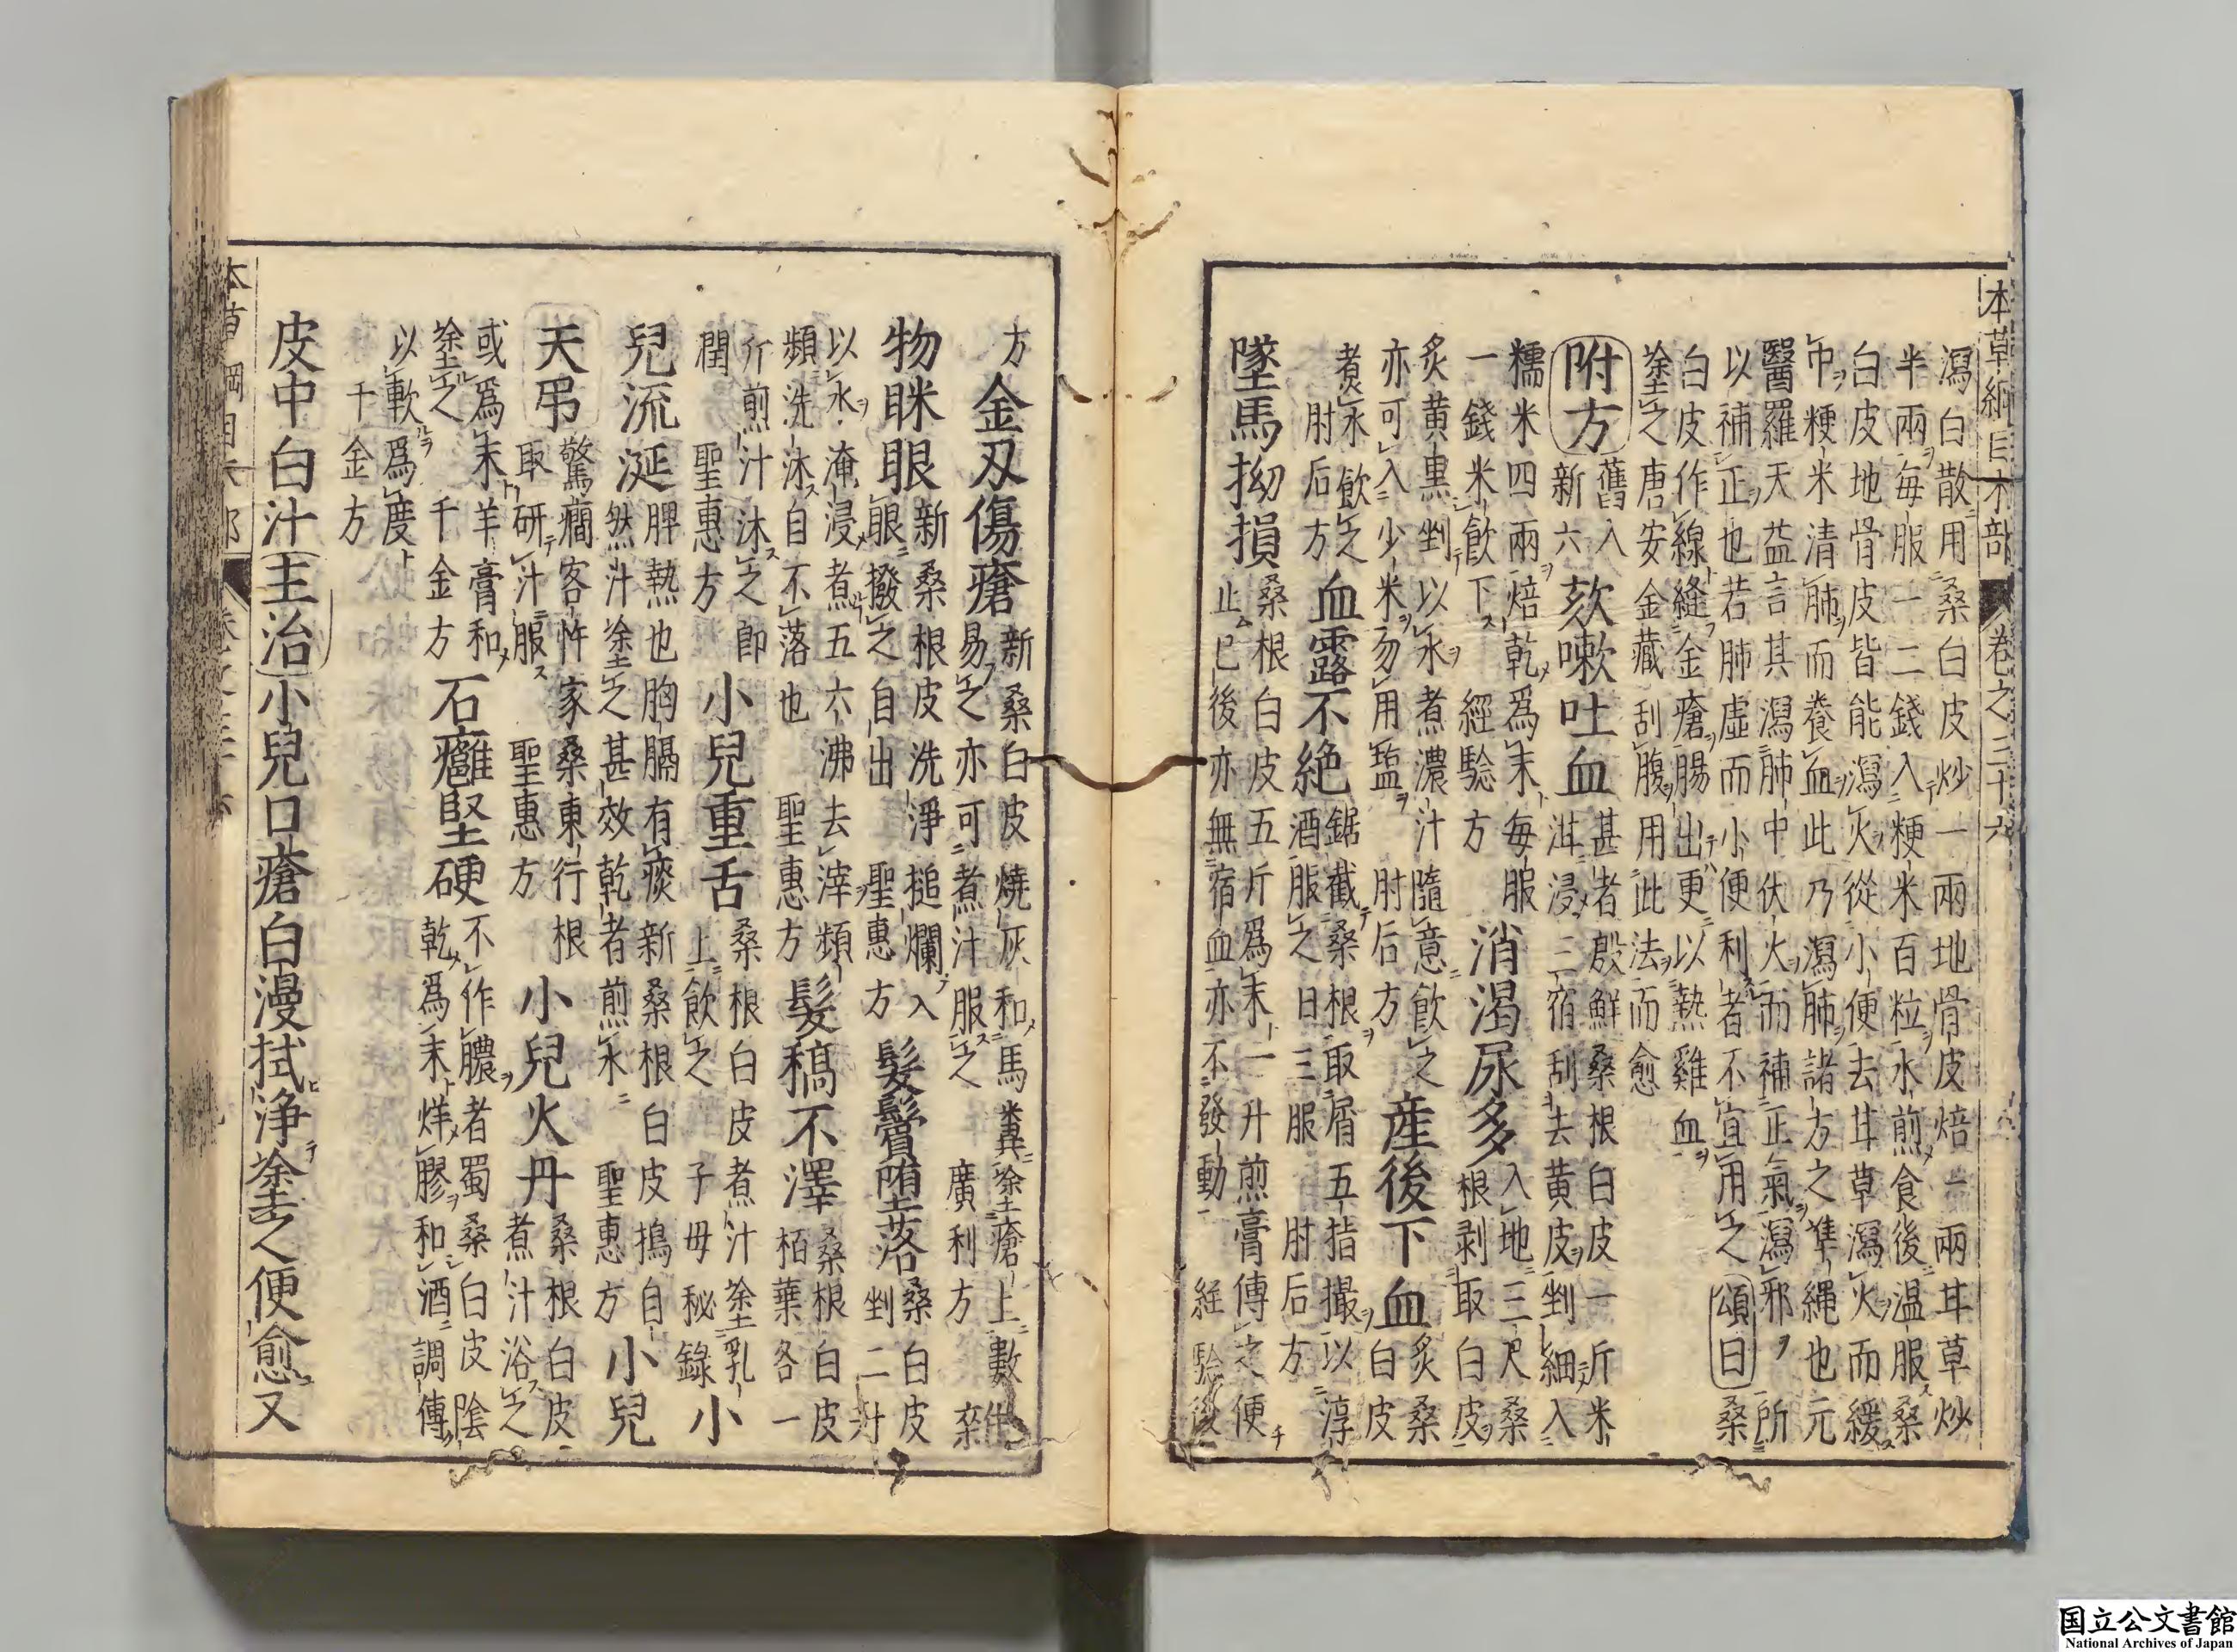 本草綱目木部 卷之三十六
瀉白散用桑白皮炒一兩地骨皮焙一兩甘草炒
半兩毎服一二錢入粳米百粒水煎食後温服桑
白皮地骨皮皆能瀉火從小便去甘草瀉火而緩
中粳米清肺而養血此乃瀉肺諸方之凖繩也元
醫羅天益言其瀉肺中伏火而補正氣瀉邪ヲ所
以補正也若肺虛而小便利者不宜用之頌曰桑
白皮作線縫金瘡腸出更以熱雞血
塗之唐安金藏刮腹用此法而愈
附方 舊入新六 欬嗽吐血 甚者殷鮮桑根白皮一斤米泔浸三宿刮去黄皮剉細入
糯米四兩焙乾爲末毎服一錢米飲下 經驗方 消渴尿多 入地三尺桑根剥取白皮
炙黄黒剉以水煮濃汁隨意飲之亦可入少米勿用鹽 肘后方 産後下血 炙桑白皮
煮水飲之肘后方 血露不絶 鋸截桑根取屑五指撮以淳酒服之日三服 肘后方
墜馬拗損 桑根白皮五斤爲末一升煎膏傅之便止已後亦無宿血亦不發動 経驗後
方 金刃傷瘡 新桑白皮燒灰和馬糞塗瘡上數易之亦可煮汁服之 廣利方 雜
物眯眼 新桑根皮洗淨搥爛入眼撥之自出 聖惠方 髪鬢堕落 桑白皮剉二升
以水淹浸煮五六沸去滓頻頻洗沐自不落也 聖惠方 髪稿不澤 桑根白皮栢葉各一
斤煎汁沐之即潤 聖惠方 小兒重舌 桑根白皮煮汁塗乳上飲之 子母秘録 小
兒流涎 脾熱也胸膈有痰新桑根白皮搗自然汁塗之甚效乾者煎水 聖惠方 小兒
天吊 驚癇客忤家桑東行根取研汁服 聖惠方 小兒火丹 桑根白皮煮汁浴之
或爲末羊膏和塗之 千金方 石癰堅硬 不作膿者蜀桑白皮陰乾爲末烊膠和酒調傅
以軟爲度千金方
皮中白汁主治小兒口瘡白漫拭浄塗之便愈又
国立公文書館
National Archives of Japan